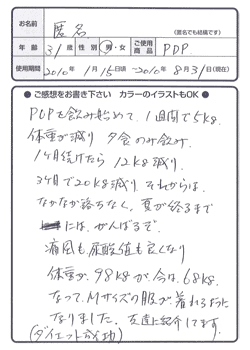 お名前 匿名
(匿名でも結構です)
年齢 31才 性別 男・女 ご使用商品 PDP
使用期間 2010年1月15日頃〜2010年8月31日(現在)
● ご感想をお書き下さい カラーのイラストもOK ●
PDPを飲み始めて、1週間で5kg.
体重が減り 夕食のみ飲み.
1ヶ月続けたら 12kg減り.
3ヶ月で20kg減り それからは.
なかなか落ちなく、夏が終るまで
には、がんばるぞ.
痛風も 尿酸値も良くなり
体重が、98kgが、今は、68kg.
なって、Mサイズの服が、着れるように
なりました. 友達に紹介してます.
(ダイエット成功)